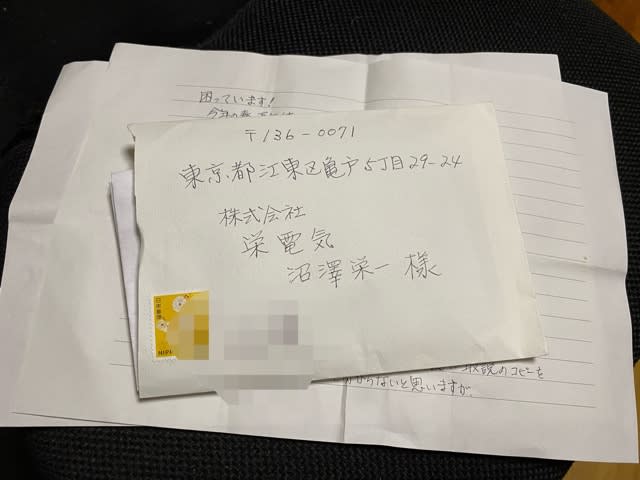 困っています!
〒136-0071
東京都江東区亀戸5丁目29-24
株式会社
栄電気
沼澤栄一様
日本郵便
NIPP
取説のコピーを
からないと思いますが、